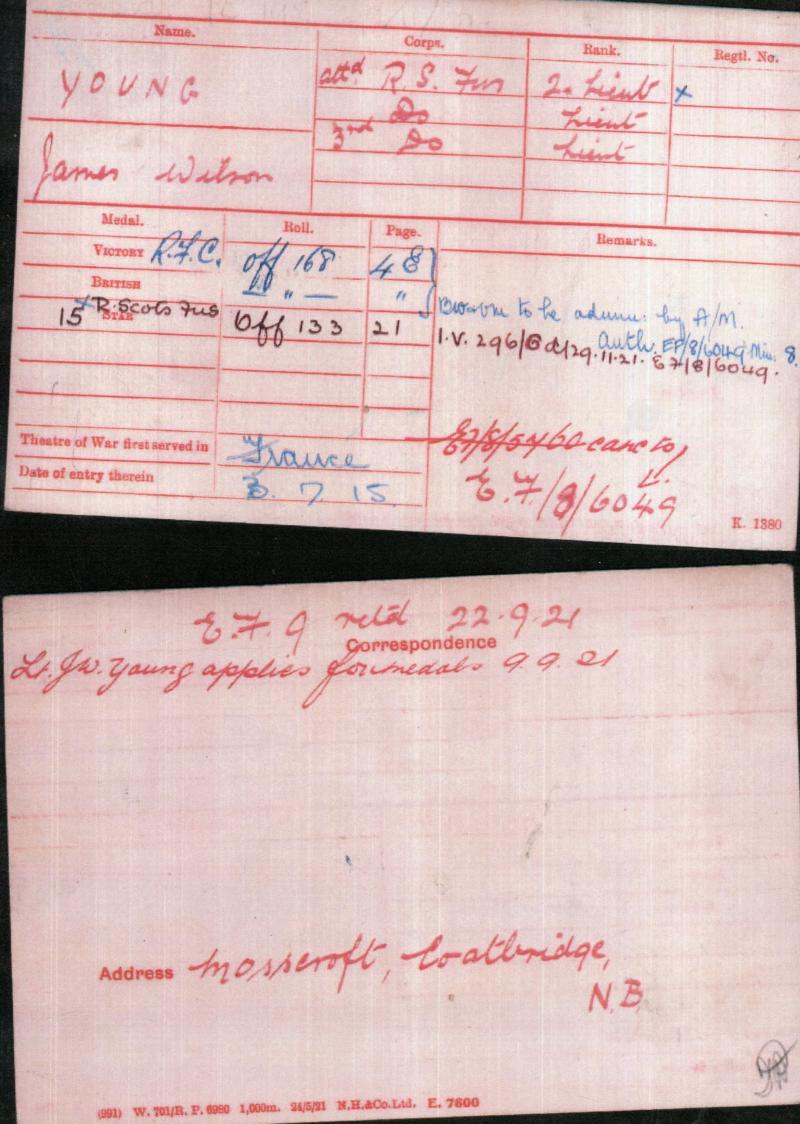 Name. Corps. Rank. Regtl. No.
YOUNG attd R. S. Fus 2. Lieut x
Do Lieut
James Wilson 3rd Do Lieut
Medal. Roll. Page. Remarks.
VICTORY R.F.C. Off 168 48
BRITISH — " — "
15 STAR x R. Scots Fus Off 133 21
to be by A/M.
Auth. EF/8/6049 Min. 8.
I.V. 296/G d/29.11.21. E7/8/6049.
Theatre of War first served in France
Date of entry therein 3. 7. 15.
E7/8/5460 canc to
E.7/8/6049
K. 1380
E.7.9 retd 22.9.21
Correspondence
Lt. J.W. Young applies for medals 9.9.21
Address Mosscroft, Coatbridge,
N.B.
(991) W. 701/R. P. 6980 1,000m. 24/5/21 N.H.&Co.Ltd. E. 7600